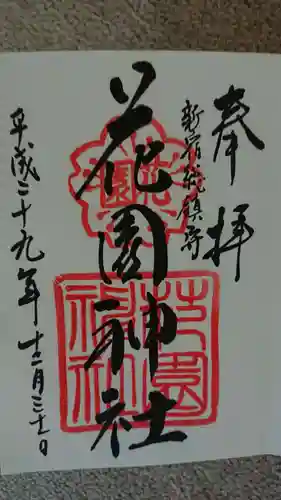 奉拝
新宿総鎮守
花園神社
平成二十九年十二月三十日
花園
花園神社